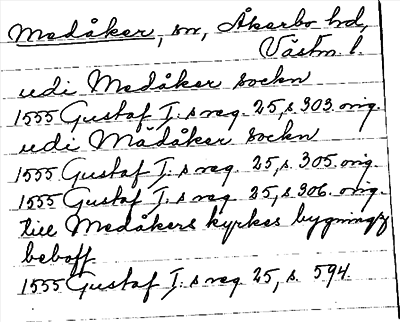 Medåker, sn, Åkerbo hd,
Västm. l.
udi Medåker sockn
1555 Gustaf I:s reg. 25, s. 303. orig.
udi Mädåker sockn
1555 Gustaf I:s reg. 25, s. 305. orig.
1555 Gustaf I:s reg. 25, s. 306. orig.
till Medåkers kyrkes bygningz
behoff
1555 Gustaf I:s reg. 25, s. 594.